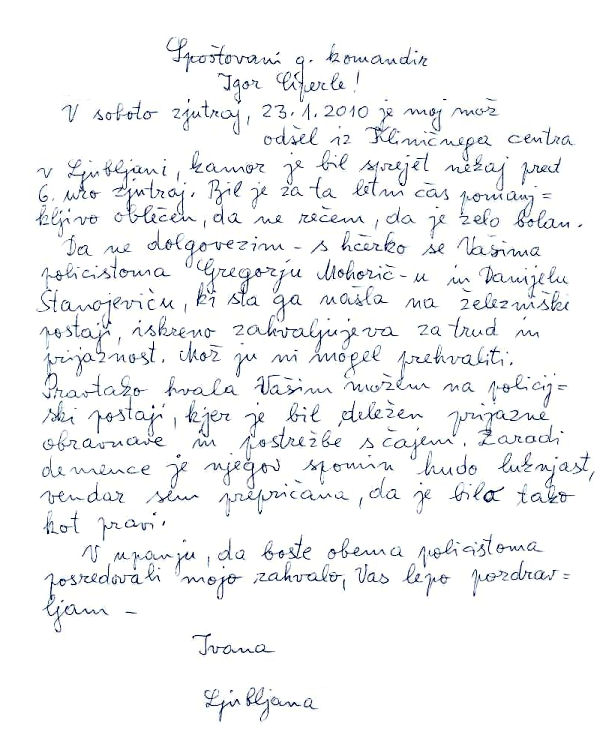 Spoštovani g. komandir
Igor Ciperle!
V soboto zjutraj, 23.1.2010 je moj mož
odšel iz Kliničnega centra
v Ljubljani, kamor je bil sprejet nekaj pred
6. uro zjutraj. Bil je za ta letni čas pomanj=
kljivo oblečen, da ne rečem, da je zelo bolan.
Da ne dolgovezim - s hčerko se Vašima
policistoma Gregorju Mohorič-u in Danijelu
Stanojeviču, ki sta ga našla na železniški
postaji, iskreno zahvaljujeva za trud in
prijaznost. Mož ju ni mogel prehvaliti.
Pravtako hvala Vašim možem na policij=
ski postaji, kjer je bil deležen prijazne
obravnave in postrežbe s čajem. Zaradi
demence je njegov spomin hudo luknjast,
vendar sem prepričana, da je bilo tako
kot pravi.
V upanju, da boste obema policistoma
posredovali mojo zahvalo, Vas lepo pozdrav=
ljam -
Ivana
Ljubljana